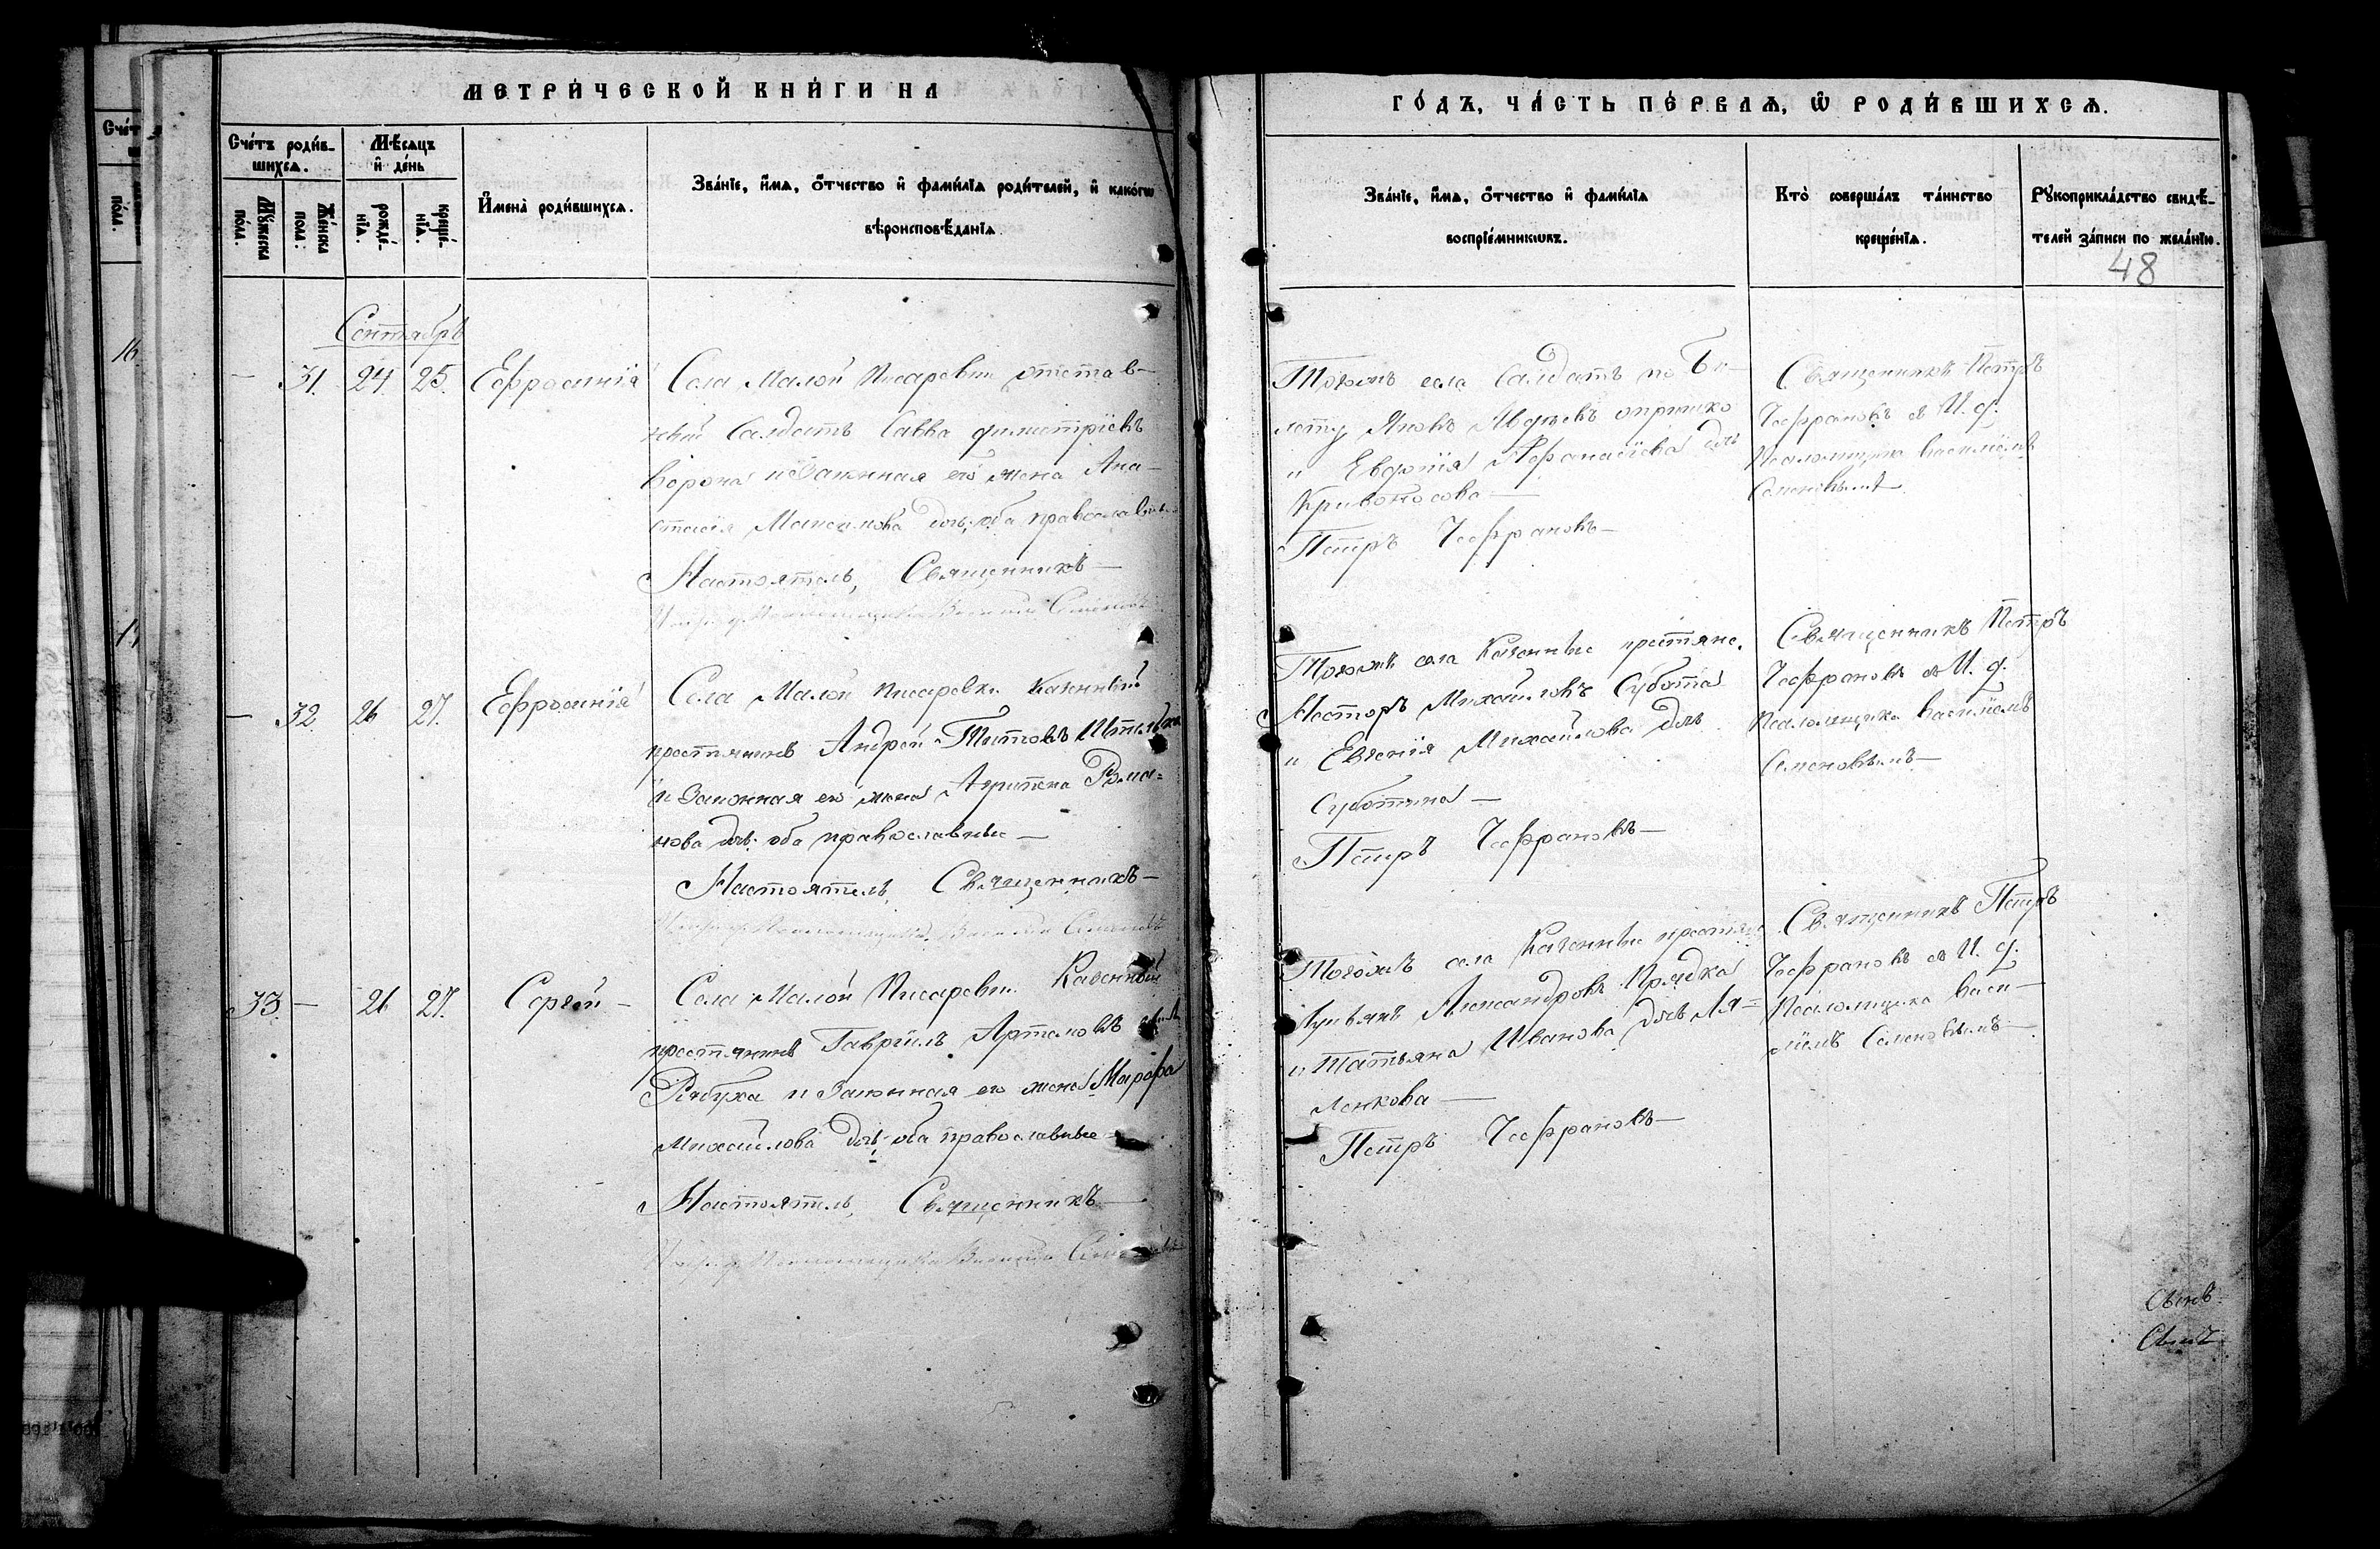 МЕТРИ́ЧЕСКОЙ КНИ́ГИ НА
ГО́ДЪ, ЧА́СТЬ ПЕ́РВАѦ, Ѡ҆ РОДИ́ВШИХСѦ.
Сче́тъ роди́в-
шихсѧ.
Мѣ́сѧцъ
и҆ де́нь
Мꙋ́жеска
пола.
Же́нска
пола.
рожде́-
нїѧ.
креще́-
нїѧ.
И҆мена̀ роди́вшихсѧ.
Зва́нїе, и҆́мѧ, ѻ҆́тчество и҆ фами́лїѧ роди́телей, и҆ како́гѡ
вѣроисповѣ́данїѧ.
Зва́нїе, и҆́мѧ, ѻ҆́тчество и҆ фами́лїѧ
воспрїе́мникѡвъ.
Кто̀ соверша́лъ та́инство
креще́нїѧ.
Рꙋкоприкла́дство свидѣ́-
телей за́писи по жела́нїю.
48
Сентябрь
— 31. 24. 25. Ефросинія
Села Малой Писаревки отстав-
ной Салдатъ Савва Димитріевъ
Ворона и Законная его жена Ана-
стасія Максимова дочь; оба православные
Настоятель, Священникъ—
Псаломщика Василій Семеновъ
Тогожъ села Салдатъ по Би-
лету Яковъ
и Евдокія Афанасіева дочь
Кривоносова —
Петръ Чефрановъ—
Священникъ Петръ
Чефрановъ съ И. д.
Псаломщика Василіемъ
Семеновымъ
— 32. 26 27. Ефросинія
Села Малой Писаревки Казенный
крестьянинъ Андрей Титовъ
и Законная его жена Агрипена Рома-
нова дочь; оба православные —
Настоятель, Священникъ—
Псаломщика Василій Семеновъ
Тогожъ села Казенные крестьяне.
Несторъ Михайловъ Субота
и Евгенія Михайлова дочь
Суботина —
Петръ Чефрановъ—
Священникъ Петръ
Чефрановъ съ И. д.
Псаломщика Василіемъ
Семеновымъ—
33. — 26 27. Сергей —
Села Малой Писаревки Казенный
крестьянинъ Гавріилъ Артемовъ
Рябуха и Законная его жена Марфа
Михайлова дочь; оба православные
Настоятель, Священникъ—
Псаломщика Василій Семеновъ
Тогожъ села Казенные крестьяне
Александровъ Прядка
и Татьяна Иванова дочь Ля=
ленкова —
Петръ Чефрановъ—
Священникъ Петръ
Чефрановъ съ И. д.
Псаломщика Васи-
ліемъ Семеновымъ—